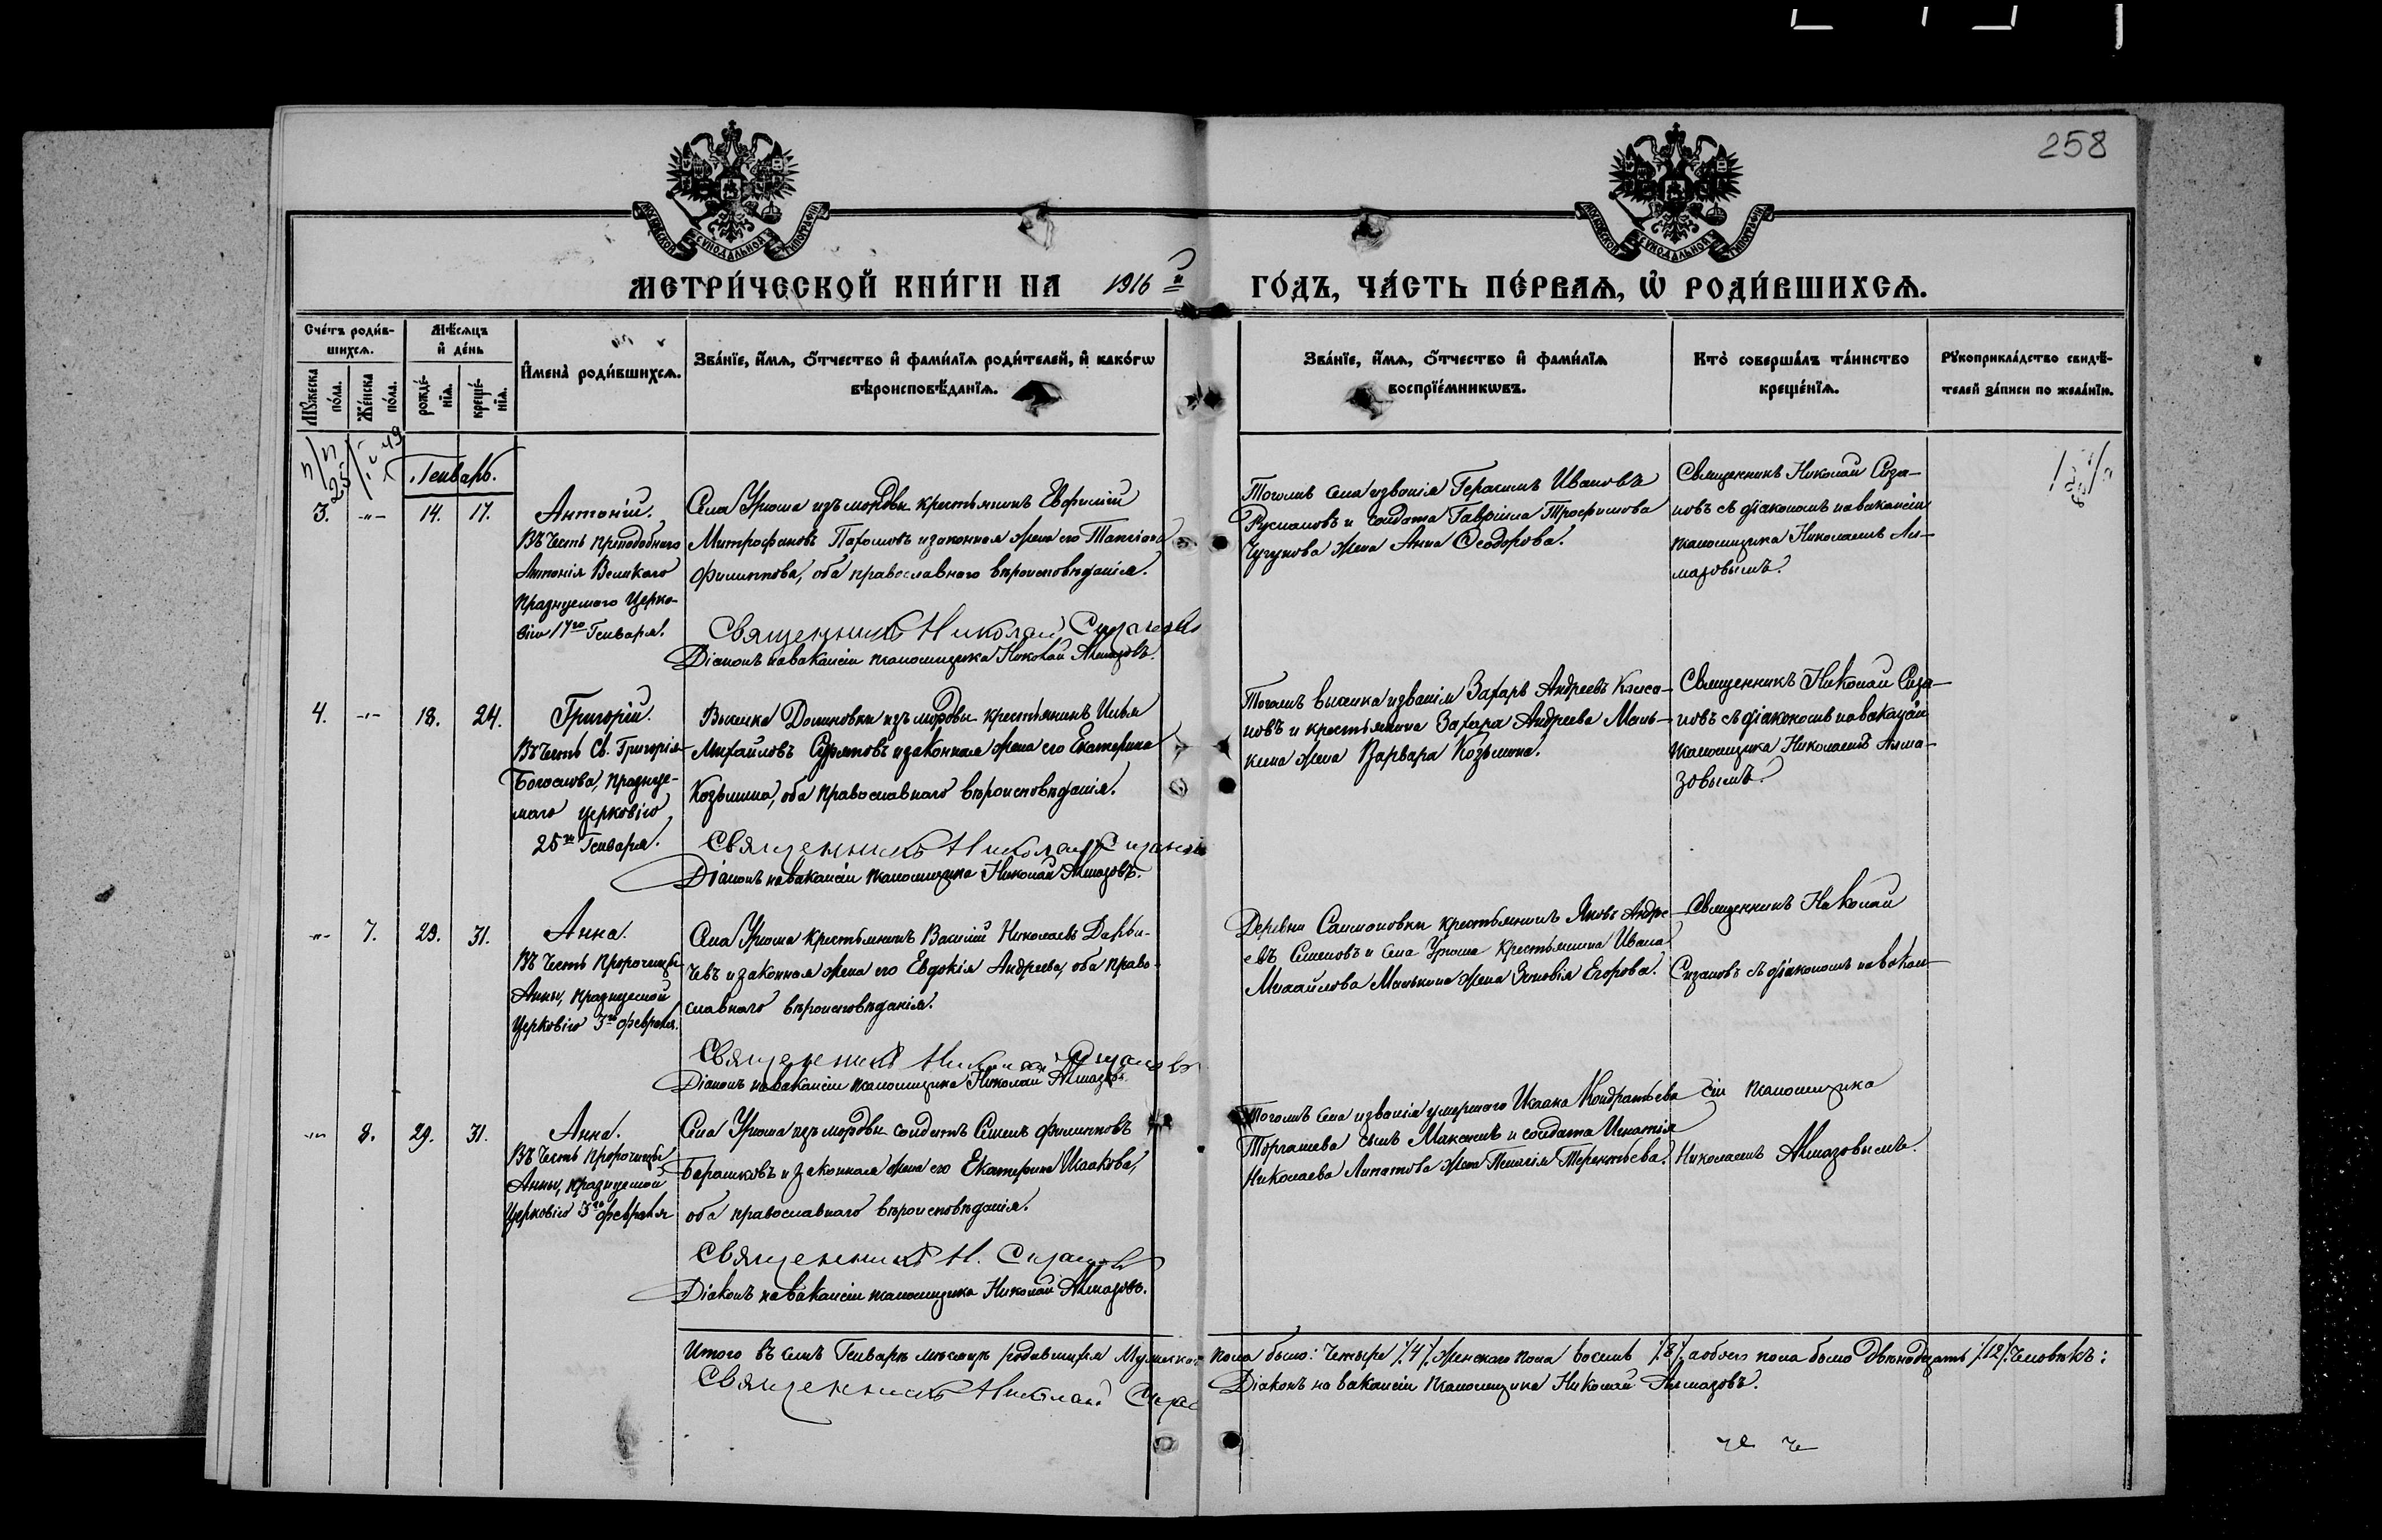 258
МОСКОВСКОЙ СѴНОДАЛЬНОЙ ТИПОГРАФІИ
МОСКОВСКОЙ СѴНОДАЛЬНОЙ ТИПОГРАФІИ
МЕТРИ́ЧЕСКОЙ КНИ́ГИ НА 1916 й ГО́ДЪ, ЧА́СТЬ ПЕ́РВАЯ, Ѡ҆ РОДИ́ВШИХСЯ.
Сче́тъ роди́в-
шихся.
Мꙋ́жеска
по́ла.
Же́нска
по́ла.
Мѣ́сяцъ
и҆ де́нь
рожде́-
нїѧ.
креще́-
нїѧ.
И҆мена̀ роди́вшихся.
Зва́нїе, и҆́мѧ, ѻ҆́тчество и҆ фами́лїѧ роди́телей, и҆ како́гѡ
вѣроисповѣ́данїѧ.
Зва́нїе, и҆́мѧ, ѻ҆́тчество и҆ фами́лїѧ
воспрїе́мникѡвъ.
Кто̀ соверша́лъ та́инство
креще́нїѧ.
Рꙋкоприкла́дство свидѣ́-
телей за́писи по жела́нїю.
Генварь.
3.
-"-
14.
17.
Антоній.
Въ честь преподобнаго
Антонія Великаго
празнуемаго Церко-
вію 17го Генваря.
Села Урюма изъ мордвы крестьянинъ Евфимій
Митрофановъ Пахомовъ и законная жена его
Филиппова, оба православнаго вѣроисповѣданія.
Священникъ Николай Сизановъ
Діаконъ на вакансіи псаломщика Николай Алмазовъ.
Тогожъ села и званія Герасимъ Ивановъ
Русмановъ и солдата Гавріила Трофимова
Чугунова жена Анна Ѳеодорова.
Священникъ Николай Сиза-
новъ съ діакономъ на вакансіи
псаломщика Николаемъ Ал-
мазовымъ.
4.
-"-
18.
24.
Григорій.
Въ честь Св. Григорія
Богослова, празнуе-
маго церковію
25го Генваря.
Выселка Долиновки изъ мордвы крестьянинъ Илья
Михайловъ и законная жена его Екатерина
Козьмина, оба православнаго вѣроисповѣданія.
Священникъ Николай Сизановъ
Діаконъ на вакансіи псаломщика Николай Алмазовъ.
Тогожъ выселка и званія Захаръ Андреевъ
новъ и крестьянина Захара Андреева Мань-
кина жена Варвара Козьмина.
Священникъ Николай Сиза-
новъ съ діакономъ на вакансіи
псаломщика Николаемъ Алма-
зовымъ.
-"-
7.
29.
31.
Анна.
Въ честь Пророчицы
Анны, празнуемой
Церковію 3го февраля.
Села Урюма крестьянинъ Василій Николаевъ
чевъ и законная жена его Евдокія Андреева, оба право-
славнаго вѣроисповѣданія.
Священникъ Николай Сизановъ
Діаконъ на вакансіи псаломщика Николай Алмазовъ.
Деревни Самсоновки крестьянинъ Яковъ Андре-
евъ Семеновъ и села Урюма крестьянина Ивана
Михайлова Манькина жена Зиновія Егорова.
Священникъ Николай
Сизановъ съ діакономъ на вакан-
-"-
8.
29.
31.
Анна.
Въ честь Пророчицы
Анны, празнуемой
Церковію 3го февраля
Села Урюма изъ мордвы солдатъ Семенъ Филипповъ
Барашковъ и законная жена его Екатерина Исаакова,
оба православнаго вѣроисповѣданія.
Священникъ Н. Сизановъ
Діаконъ на вакансіи псаломщика Николай Алмазовъ.
Тогожъ села и званія умершаго Исаака Кондратьева
Торгашева сынъ Максимъ и солдата Игнатія
Николаева Липатова жена Пелагія Терентьева.
сіи псаломщика
Николаемъ Алмазовымъ.
Итого въ семъ Генварѣ мѣсяцѣ родившихся мужскаго пола было: четыре /4/, женскаго пола восемь /8/, а обоего пола было двѣнадцать /12/ человѣкъ:
Священникъ Николай Сизановъ Діаконъ на вакансіи псаломщика Николай Алмазовъ.